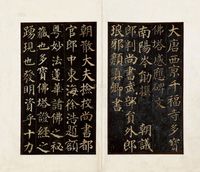 大唐西京千福寺多寶
佛塔感應碑文
南陽岑勛撰 朝議
郎判尚書武部員外郎
琅邪顏真卿書
朝散大夫撿校尚書都
官郎中東海徐浩題額
粵妙法蓮華諸佛之秘
藏也多寶佛塔證經之
踴現也發明資乎十力